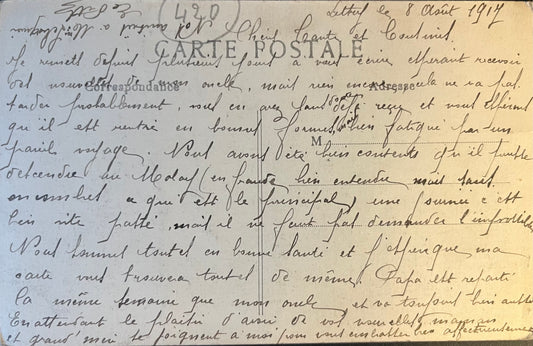 Le 8 Août 1917
(420)
CARTE POSTALE
Correspondance
Adresse
M
Cher Tante et Cousines.
Je remets depuis plusieurs jours à vous écrire espérant recevoir
des nouvelles de mon oncle, mais rien encore, cela ne va pas
tarder probablement, vous en avez sans doute déjà reçu et vous
qu'il est rentré en bonnes formes, mais bien fatigué par un
pareil voyage. Nous avons été bien contents qu'il puisse
descendre au (en fraude bien entendu mais tous
ensembles ce qui est le principal) une journée c'est
bien vite passé, mais il ne faut pas demander l'impossible
Nous sommes toutes en bonne santé et j'espère que ma
carte vous trouvera toutes de même. Papa est reparti
la même semaine que mon oncle, et va toujours bien aussi
En attendant le plaisir d'avoir de vos nouvelles, maman
et grand'mère se joignent à moi pour vous embrasser bien affectueusement